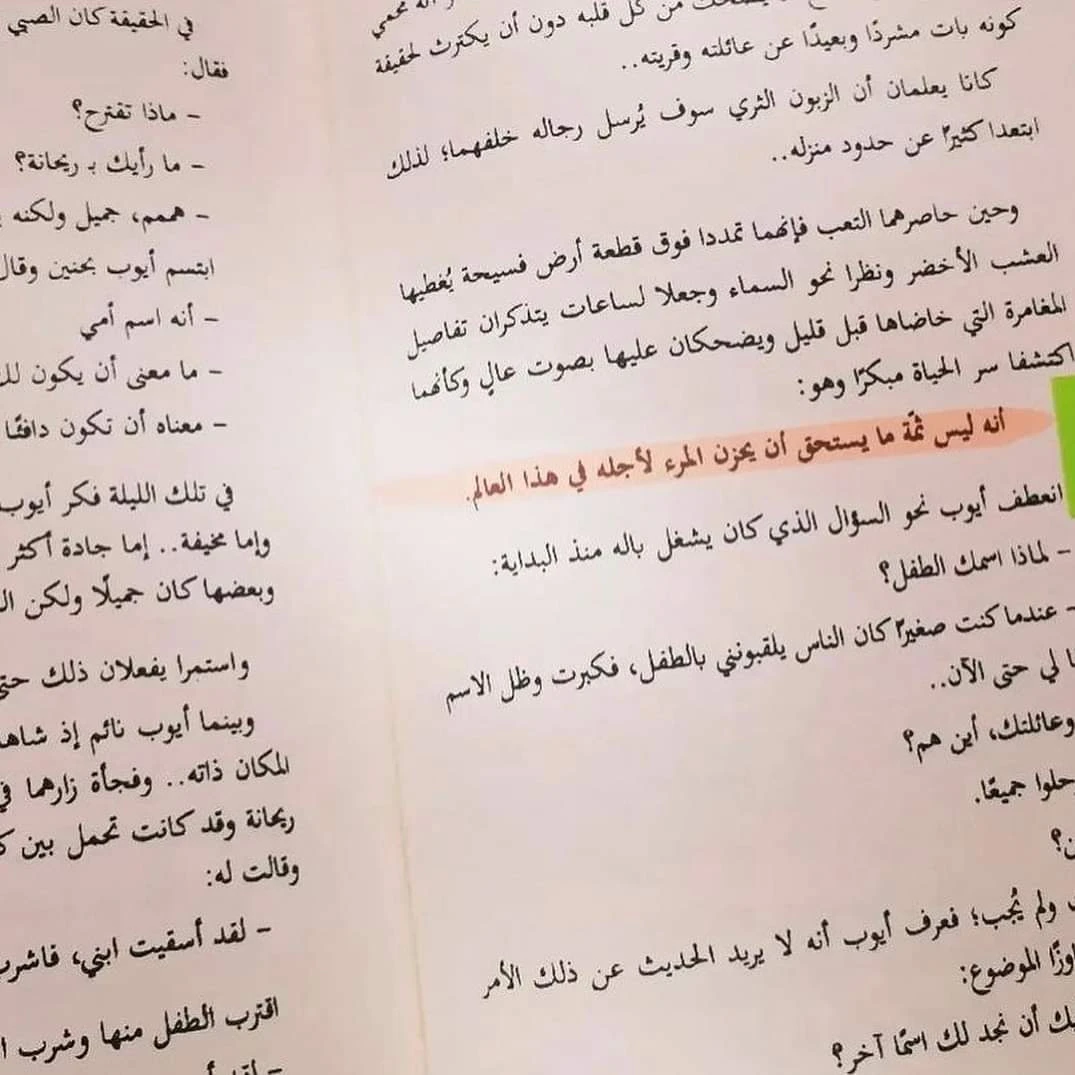 يضحك من كل قلبه دون أن يكترث لحقيقة
كونه بات مشردًا وبعيدًا عن عائلته وقريته..
كانا يعلمان أن الزبون الثري سوف يُرسل رجاله خلفهما؛ لذلك
ابتعدا كثيرًا عن حدود منزله..
وحين حاصرهما التعب فإنهما تمددا فوق قطعة أرض فسيحة يُغطيها
العشب الأخضر ونظرا نحو السماء وجعلا لساعات يتذكران تفاصيل
المغامرة التي خاضاها قبل قليل ويضحكان عليها بصوت عالٍ وكأنهما
اكتشفا سر الحياة مبكرًا وهو:
أنه ليس ثمّة ما يستحق أن يحزن المرء لأجله في هذا العالم.
انعطف أيوب نحو السؤال الذي كان يشغل باله منذ البداية:
- لماذا اسمك الطفل؟
- عندما كنت صغيرًا كان الناس يلقبونني بالطفل، فكبرت وظل الاسم
لي حتى الآن..
وعائلتك، أين هم؟
رحلوا جميعًا.
ولم يُجب؛ فعرف أيوب أنه لا يريد الحديث عن ذلك الأمر
الموضوع:
أن نجد لك اسمًا آخر؟
في الحقيقة كان الصبي
فقال:
- ماذا تقترح؟
- ما رأيك بـ ريحانة؟
- هممم، جميل ولكنه
ابتسم أيوب بحنين وقال
- أنه اسم أمي
- ما معنى أن يكون لك
- معناه أن تكون دافئًا
في تلك الليلة فكر أيوب
وإما مخيفة.. إما جادة أكثر
وبعضها كان جميلًا ولكن
واستمرا يفعلان ذلك حتى
وبينما أيوب نائم إذ شاهد
المكان ذاته.. وفجأة زارهما في
ريحانة وقد كانت تحمل بين
وقالت له:
- لقد أسقيت ابني، فاشرب
اقترب الطفل منها وشرب